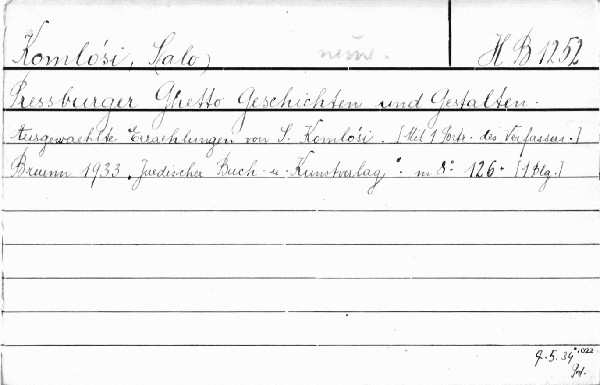 Komlósi, Salo, H B 1252
Pressburger Ghetto Geschichten und Gestalten.
Ausgewaehlte Erzaehlungen von S. Komlósi. [Mit 1 Portr. des Verfassers.]
Bruenn 1933. "Juedischer Buch- u. Kunstverlag". m 8° 126. [1 Blg.]
9.5.34